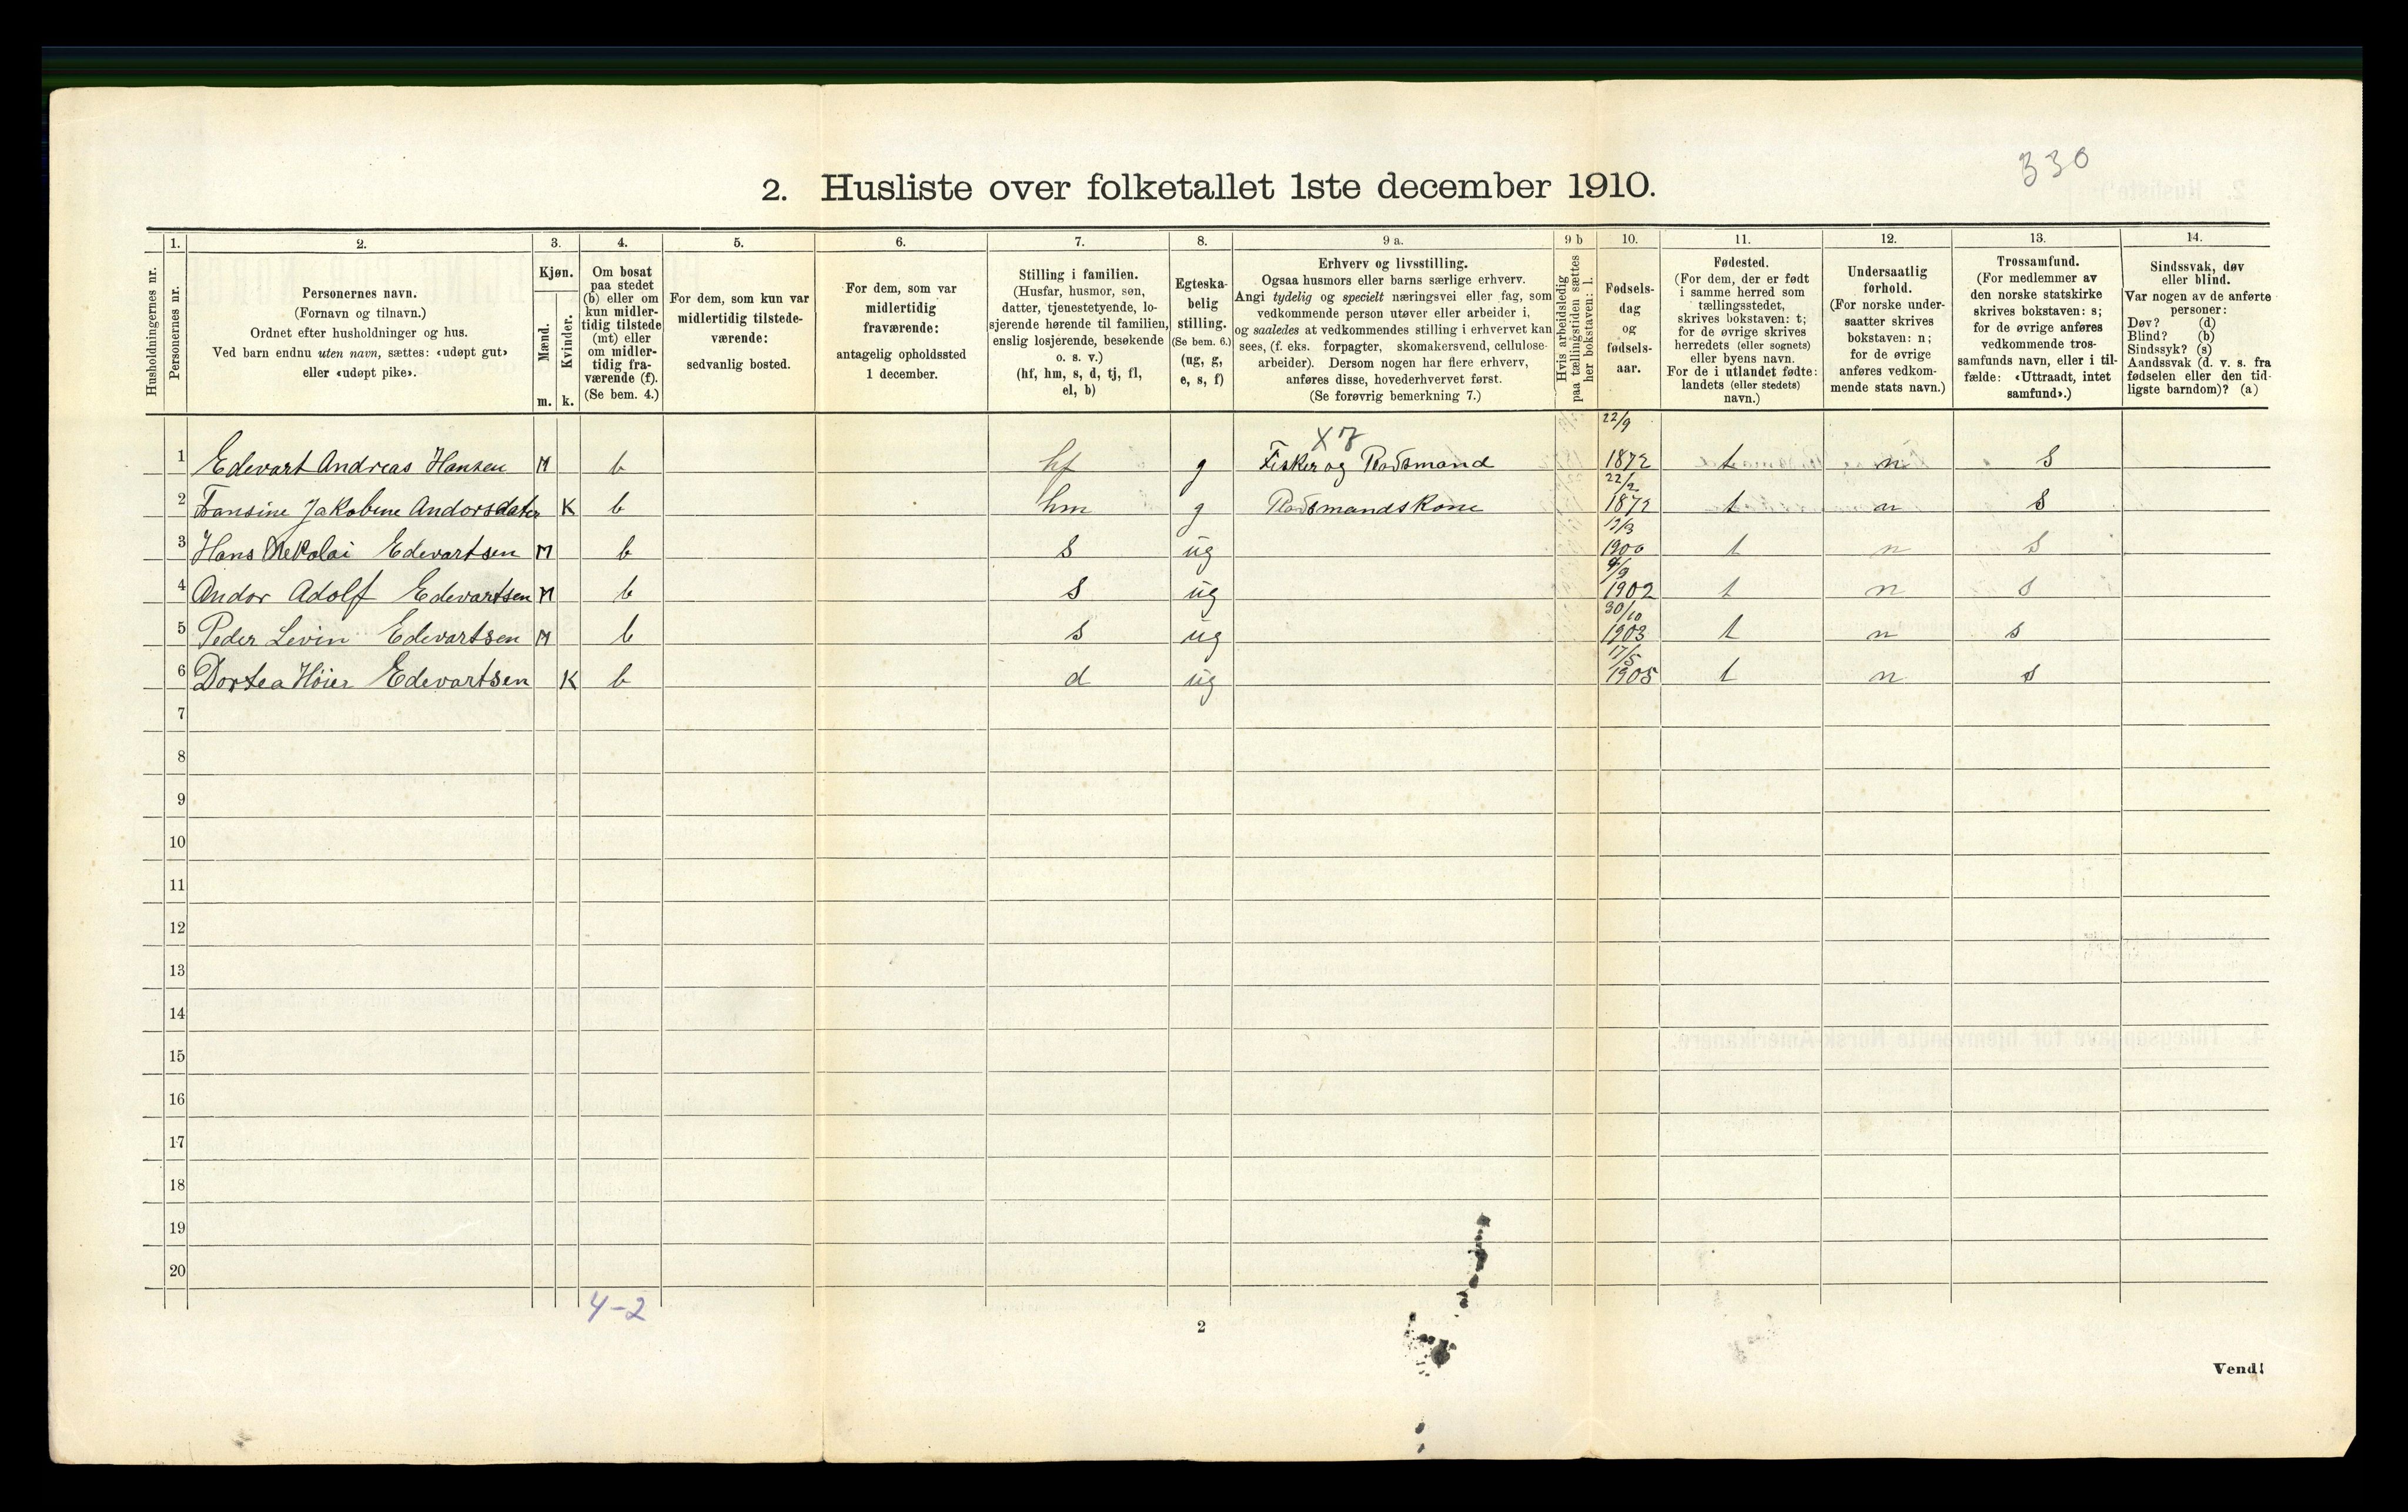 330
2. Husliste over folketallet 1ste december 1910.
Husholdningernes nr.
1.
Personernes nr.
2.
Personernes navn.
(Fornavn og tilnavn.)
Ordnet efter husholdninger og hus.
Ved barn endnu uten navn, sættes: «udøpt gut»
eller «udøpt pike».
3.
Kjøn.
Mænd.
Kvinder.
m. k.
4.
Om bosat
paa stedet
(b) eller om
kun midler-
tidig tilstede
(mt) eller
om midler-
tidig fra-
værende (f).
(Se bem. 4.)
5.
For dem, som kun var
midlertidig tilstede-
værende:
sedvanlig bosted.
6.
For dem, som var
midlertidig
fraværende:
antagelig opholdssted
1 december.
7.
Stilling i familien.
(Husfar, husmor, søn,
datter, tjenestetyende, lo-
sjerende hørende til familien,
enslig losjerende, besøkende
o. s. v.)
(hf, hm, s, d, tj, fl,
el, b)
8.
Egteska-
belig
stilling.
(Se bem. 6.)
(ug, g,
e, s, f)
9 a.
Erhverv og livsstilling.
Ogsaa husmors eller barns særlige erhverv.
Angi tydelig og specielt næringsvei eller fag, som
vedkommende person utøver eller arbeider i,
og saaledes at vedkommendes stilling i erhvervet kan
sees, (f. eks. forpagter, skomakersvend, cellulose-
arbeider). Dersom nogen har flere erhverv,
anføres disse, hovederhvervet først.
(Se forøvrig bemerkning 7.)
9 b
Hvis arbeidsledig
paa tællingstiden sættes
her bokstaven: l.
10.
Fødsels-
dag
og
fødsels-
aar.
11.
Fødested.
(For dem, der er født
i samme herred som
tællingsstedet,
skrives bokstaven: t;
for de øvrige skrives
herredets (eller sognets)
eller byens navn.
For de i utlandet fødte:
landets (eller stedets)
navn.)
12.
Undersaatlig
forhold.
(For norske under-
saatter skrives
bokstaven: n;
for de øvrige
anføres vedkom-
mende stats navn.)
13.
Trossamfund.
(For medlemmer av
den norske statskirke
skrives bokstaven: s;
for de øvrige anføres
vedkommende tros-
samfunds navn, eller i til-
fælde: «Uttraadt, intet
samfund».)
14.
Sindssvak, døv
eller blind.
Var nogen av de anførte
personer:
Døv? (d)
Blind? (b)
Sindssyk? (s)
Aandssvak (d. v. s. fra
fødselen eller den tid-
ligste barndom)? (a)
X 7 22/9
1 Edevart Andreas Hansen M b hf g Fisker og 1872 t n S
22/2
2 Fransine Jakobine Andorsdater K b hm g 1872 t n S
3 Hans Nekolai Edevartsen M b S ug 1900 t n S
4/9
4 Andor Adolf Edevartsen M b S ug 1902 t n S
30/10
5 Peder Levin Edevartsen M b S ug 1903 t n s
17/5
6 Dortea Höier Edevartsen K b d ug 1905 t n s
7
8
9
10
11
12
13
14
15
16
17
18
19
20
4-2
2
Vend!